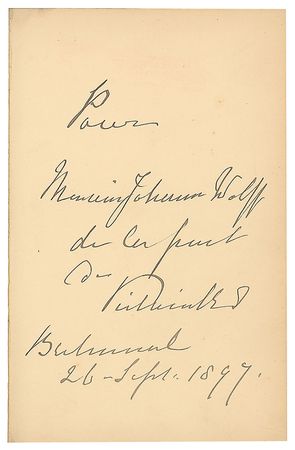 Pour
Monsieur Johannes Wolff
de la part
de
Balmoral
26 - Sept. 1897.